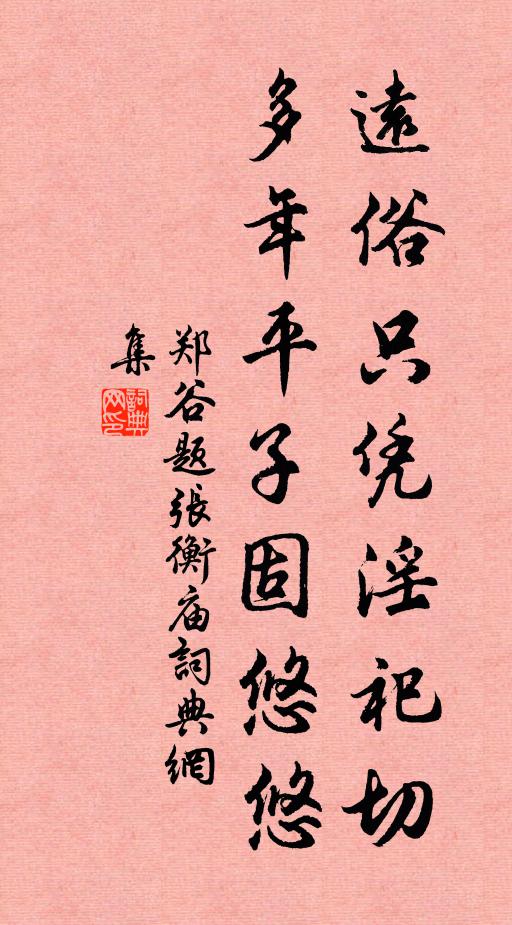 遠俗只凭淫祀切
多年平子固悠悠
郑谷题張衡庙詞典網
集
詞典
网印